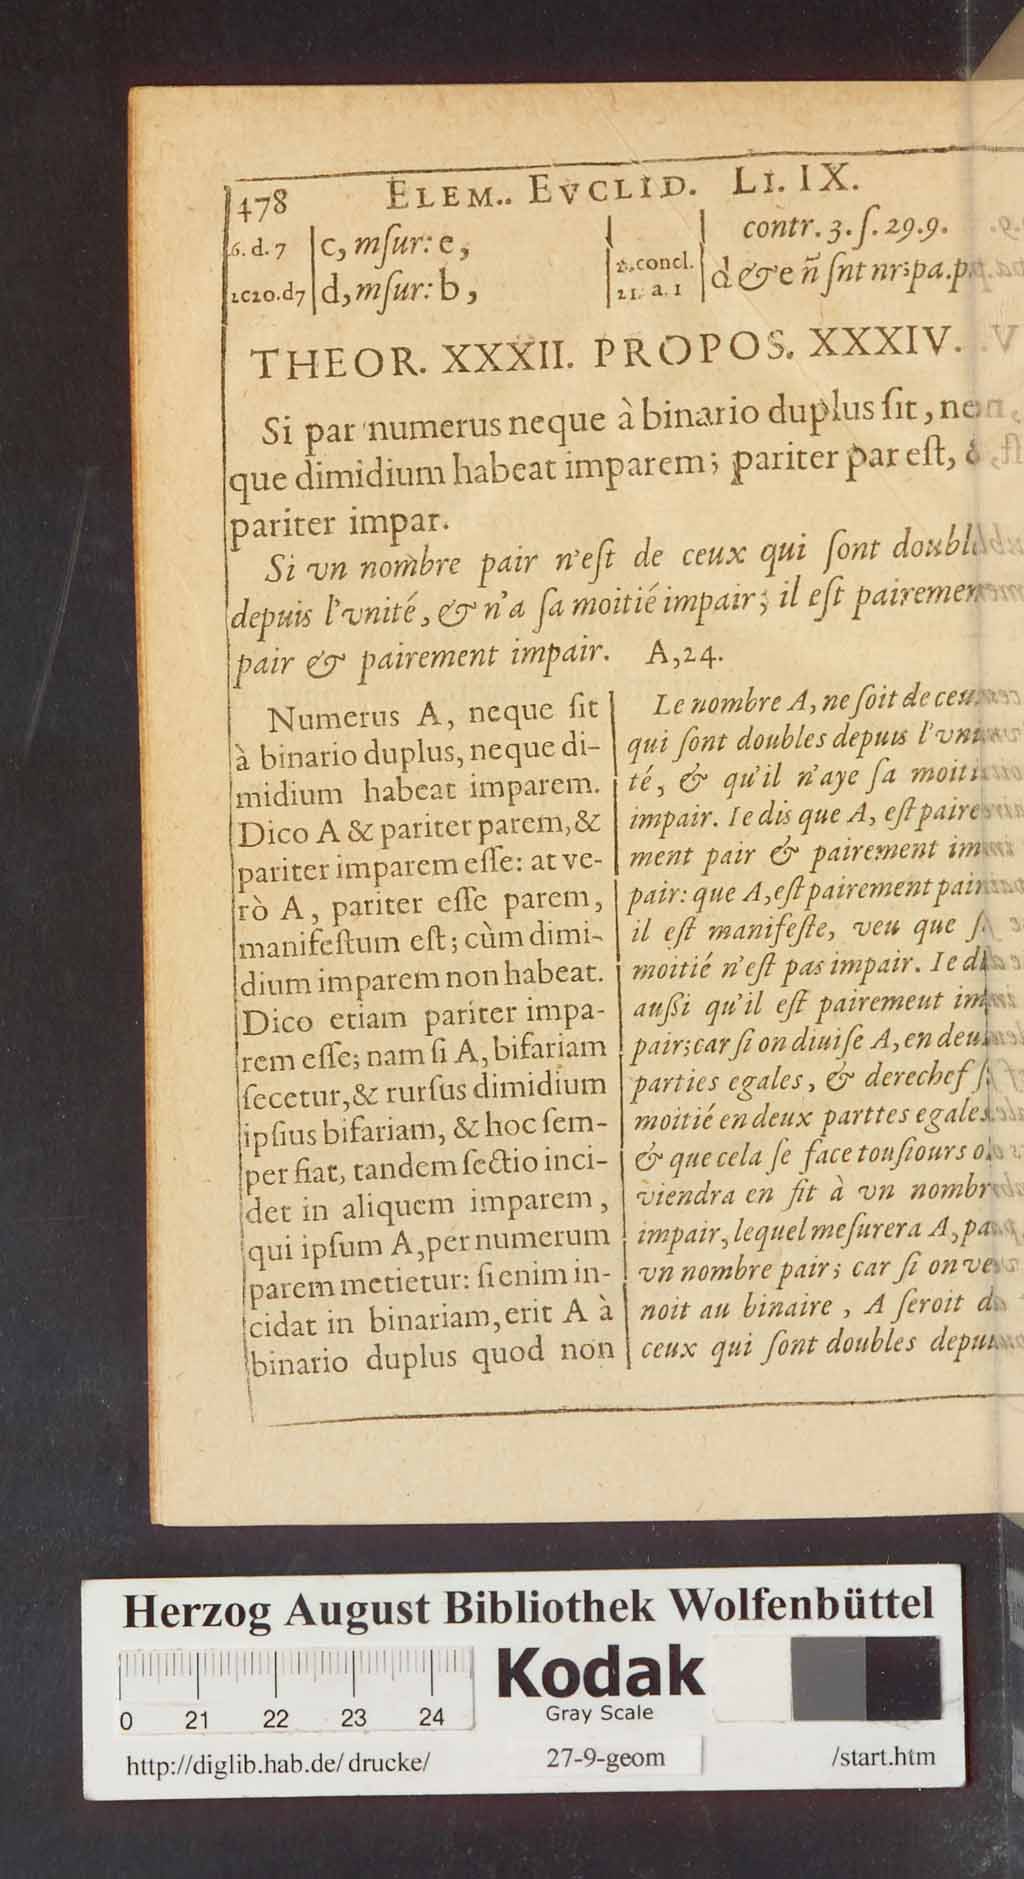 478 ELEM.. EVCLID. LI. IX.
6. d. 7 | c, mſur: e, | | contr. 3. ſ. 29. 9.
1c20.d7 | d, mſur: b, | concl. 21. a. 1 | d & e ñ ſnt nr: pa. p
THEOR. XXXII. PROPOS. XXXIV.
Si par numerus neque à binario duplus ſit, ne
que dimidium habeat imparem; pariter par eſt, &
pariter impar.
Si vn nombre pair n'eſt de ceux qui ſont doubl
depuis l'vnité, & n'a ſa moitié impair; il eſt pairemen
pair & pairement impair. A, 24.
Numerus A, neque ſit
à binario duplus, neque di-
midium habeat imparem.
Dico A & pariter parem, &
pariter imparem eſſe: at ve-
rò A, pariter eſſe parem,
manifeſtum eſt; cùm dimi-
dium imparem non habeat.
Dico etiam pariter impa-
rem eſſe; nam ſi A, bifariam
ſecetur, & rurſus dimidium
ipſius bifariam, & hoc ſem-
per fiat, tandem ſectio inci-
det in aliquem imparem,
qui ipſum A, per numerum
parem metietur: ſi enim in-
cidat in binariam, erit A à
binario duplus quod non
Le nombre A, ne ſoit de ceu
qui ſont doubles depuis l'vni
té, & qu'il n'aye ſa moiti
impair. Ie dis que A, eſt paire
ment pair & pairement im
pair: que A, eſt pairement pair
il eſt manifeſte, veu que ſ
moitié n'eſt pas impair. Ie di
auſſi qu'il eſt pairemeut im
pair; car ſi on diuiſe A, en deu
parties egales, & derechef ſ
moitié en deux parttes egales
& que cela ſe face touſiours o
viendra en fit à vn nombr
impair, lequel meſurera A, pa
vn nombre pair; car ſi on ve
noit au binaire, A ſeroit d
ceux qui ſont doubles depu
Herzog August Bibliothek Wolfenbüttel
0 21 22 23 24
Kodak
Gray Scale
http://diglib.hab.de/ drucke/ 27-9-geom /start.htm